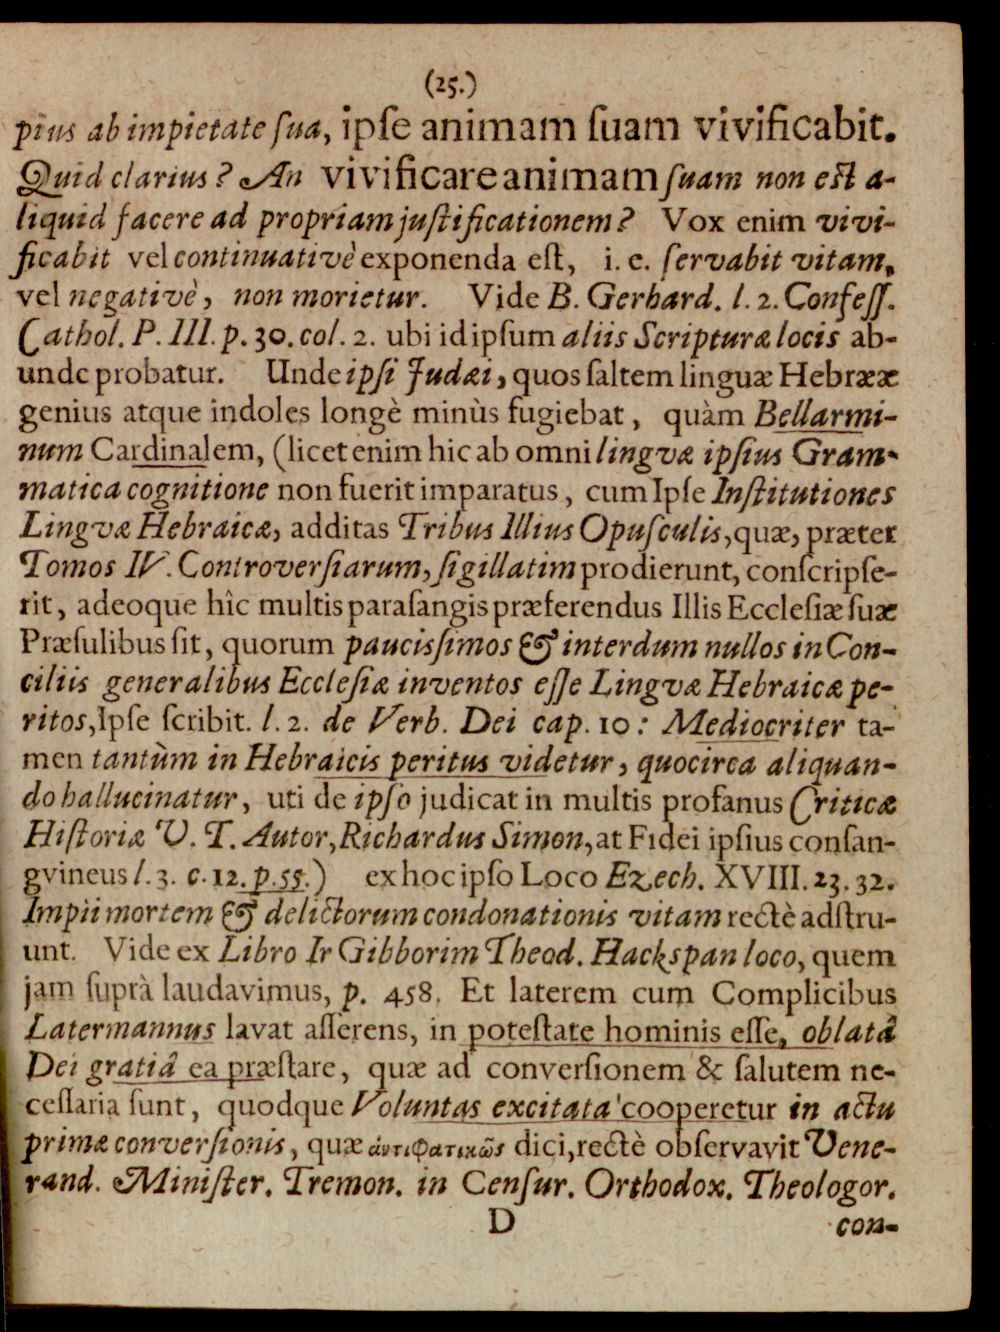 (25.)
pius ab impietate ſua, ipſe animam ſuam vivificabit.
Quid clarius? An vivificare animam ſuam non eſt a-
liquid facere ad propriam juſtificationem? Vox enim vivi-
ficabit vel continuativè exponenda eſt, i. e. ſervabit vitam,
vel negativè, non morietur. Vide B. Gerhard. l. 2. Confeſſ.
Cathol. P. III. p. 30. col. 2. ubi id ipſum aliis Scripturæ locis ab-
unde probatur. Unde ipſi Judæi, quos ſaltem linguæ Hebrææ
genius atque indoles longè minùs fugiebat, quàm Bellarmi-
num Cardinalem, (licet enim hic ab omni lingvæ ipſius Gram-
matica cognitione non fuerit imparatus, cum Ipſe Inſtitutiones
Lingvæ Hebraicæ, additas Tribus Illius Opuſculis, quæ, præter
Tomos IV. Controverſiarum, ſigillatim prodierunt, conſcripſe-
rit, adeoque hîc multis paraſangis præferendus Illis Eccleſiæ ſuæ
Præſulibus ſit, quorum pauciſſimos & interdum nullos in Con-
ciliis generalibus Eccleſiæ inventos eſſe Lingvæ Hebraicæ pe-
ritos, Ipſe ſcribit. l. 2. de Verb. Dei cap. 10: Mediocriter ta-
men tantùm in Hebraicis peritus videtur, quocirca aliquan-
do hallucinatur, uti de ipſo judicat in multis profanus Criticæ
Hiſtoriæ V. T. Autor, Richardus Simon, at Fidei ipſius conſan-
gvineus l. 3. c. 12. p. 55.) ex hoc ipſo Loco Ezech. XVIII. 23. 32.
Impii mortem & delictorum condonationis vitam rectè adſtru-
unt. Vide ex Libro Ir Gibborim Theod. Hackſpan loco, quem
jam ſuprà laudavimus, p. 458. Et laterem cum Complicibus
Latermannus lavat aſſerens, in poteſtate hominis eſſe, oblatâ
Dei gratiâ ea præſtare, quæ ad converſionem & ſalutem ne-
ceſſaria ſunt, quodque Voluntas excitata cooperetur in actu
primæ converſionis, quæ ἀντιφατικῶς dici, rectè obſervavit Vene-
rand. Miniſter. Tremon. in Cenſur. Orthodox. Theologor.
D
con-